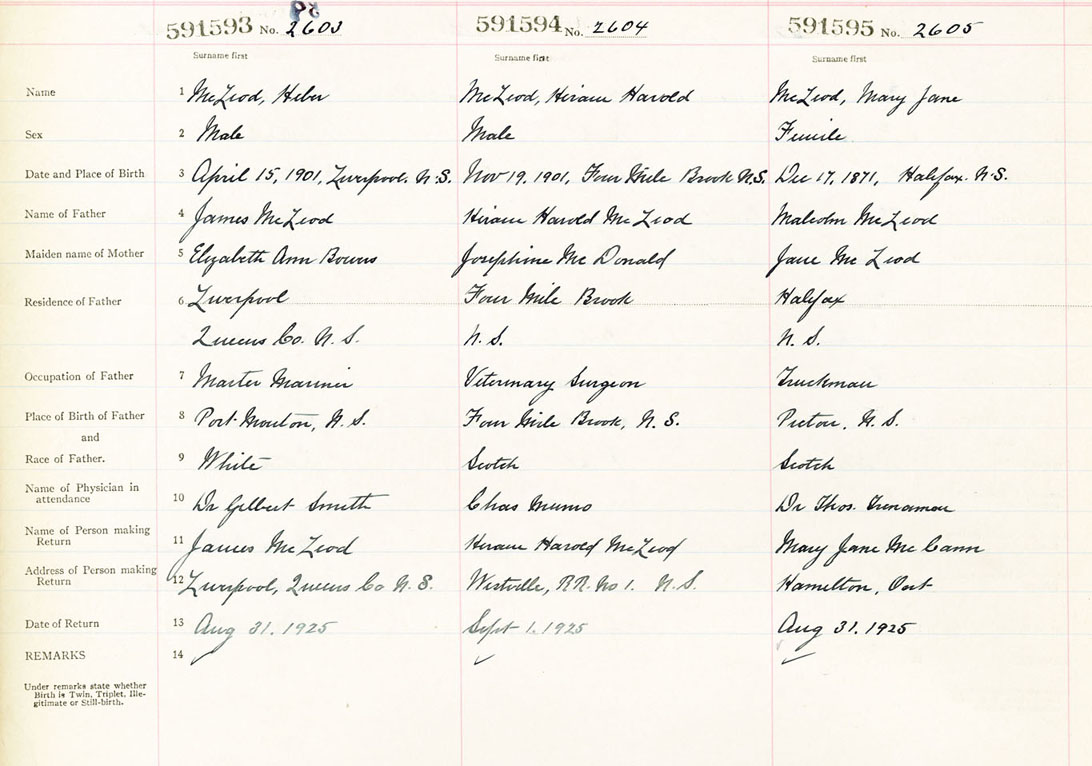 591593 No. 2603 591594 No. 2604 591595 No. 2605
Surname first Surname first Surname first
Name 1 McLeod, Heber McLeod, Hiram Harold McLeod, Mary Jane
Sex 2 Male Male Female
Date and Place of Birth 3 April 15, 1901, Liverpool. N.S. Nov 19, 1901, Four Mile Brook N.S. Dec 17, 1871, Halifax. N.S.
Name of Father 4 James McLeod Hiram Harold McLeod Malcolm McLeod
Maiden name of Mother 5 Elizabeth Ann Bowers Josephine McDonald Jane McLeod
Residence of Father 6 Liverpool Four Mile Brook Halifax
Queens Co. N.S. N.S. N.S.
Occupation of Father 7 Master Mariner Veterinary Surgeon Truckman
Place of Birth of Father 8 Port Mouton, N.S. Four Mile Brook, N.S. Pictou, N.S.
and
Race of Father. 9 White Scotch Scotch
Name of Physician in
attendance 10 Dr Gilbert Smith Chas Munro Dr Thos. Trenaman
Name of Person making
Return 11 James McLeod Hiram Harold McLeod Mary Jane McCann
Address of Person making
Return 12 Liverpool, Queens Co N.S. Westville, RR. No 1. N.S. Hamilton, Ont
Date of Return 13 Aug 31. 1925 Sept 1. 1925 Aug 31. 1925
REMARKS 14
Under remarks state whether
Birth is Twin, Triplet, Ille-
gitimate or Still-birth.